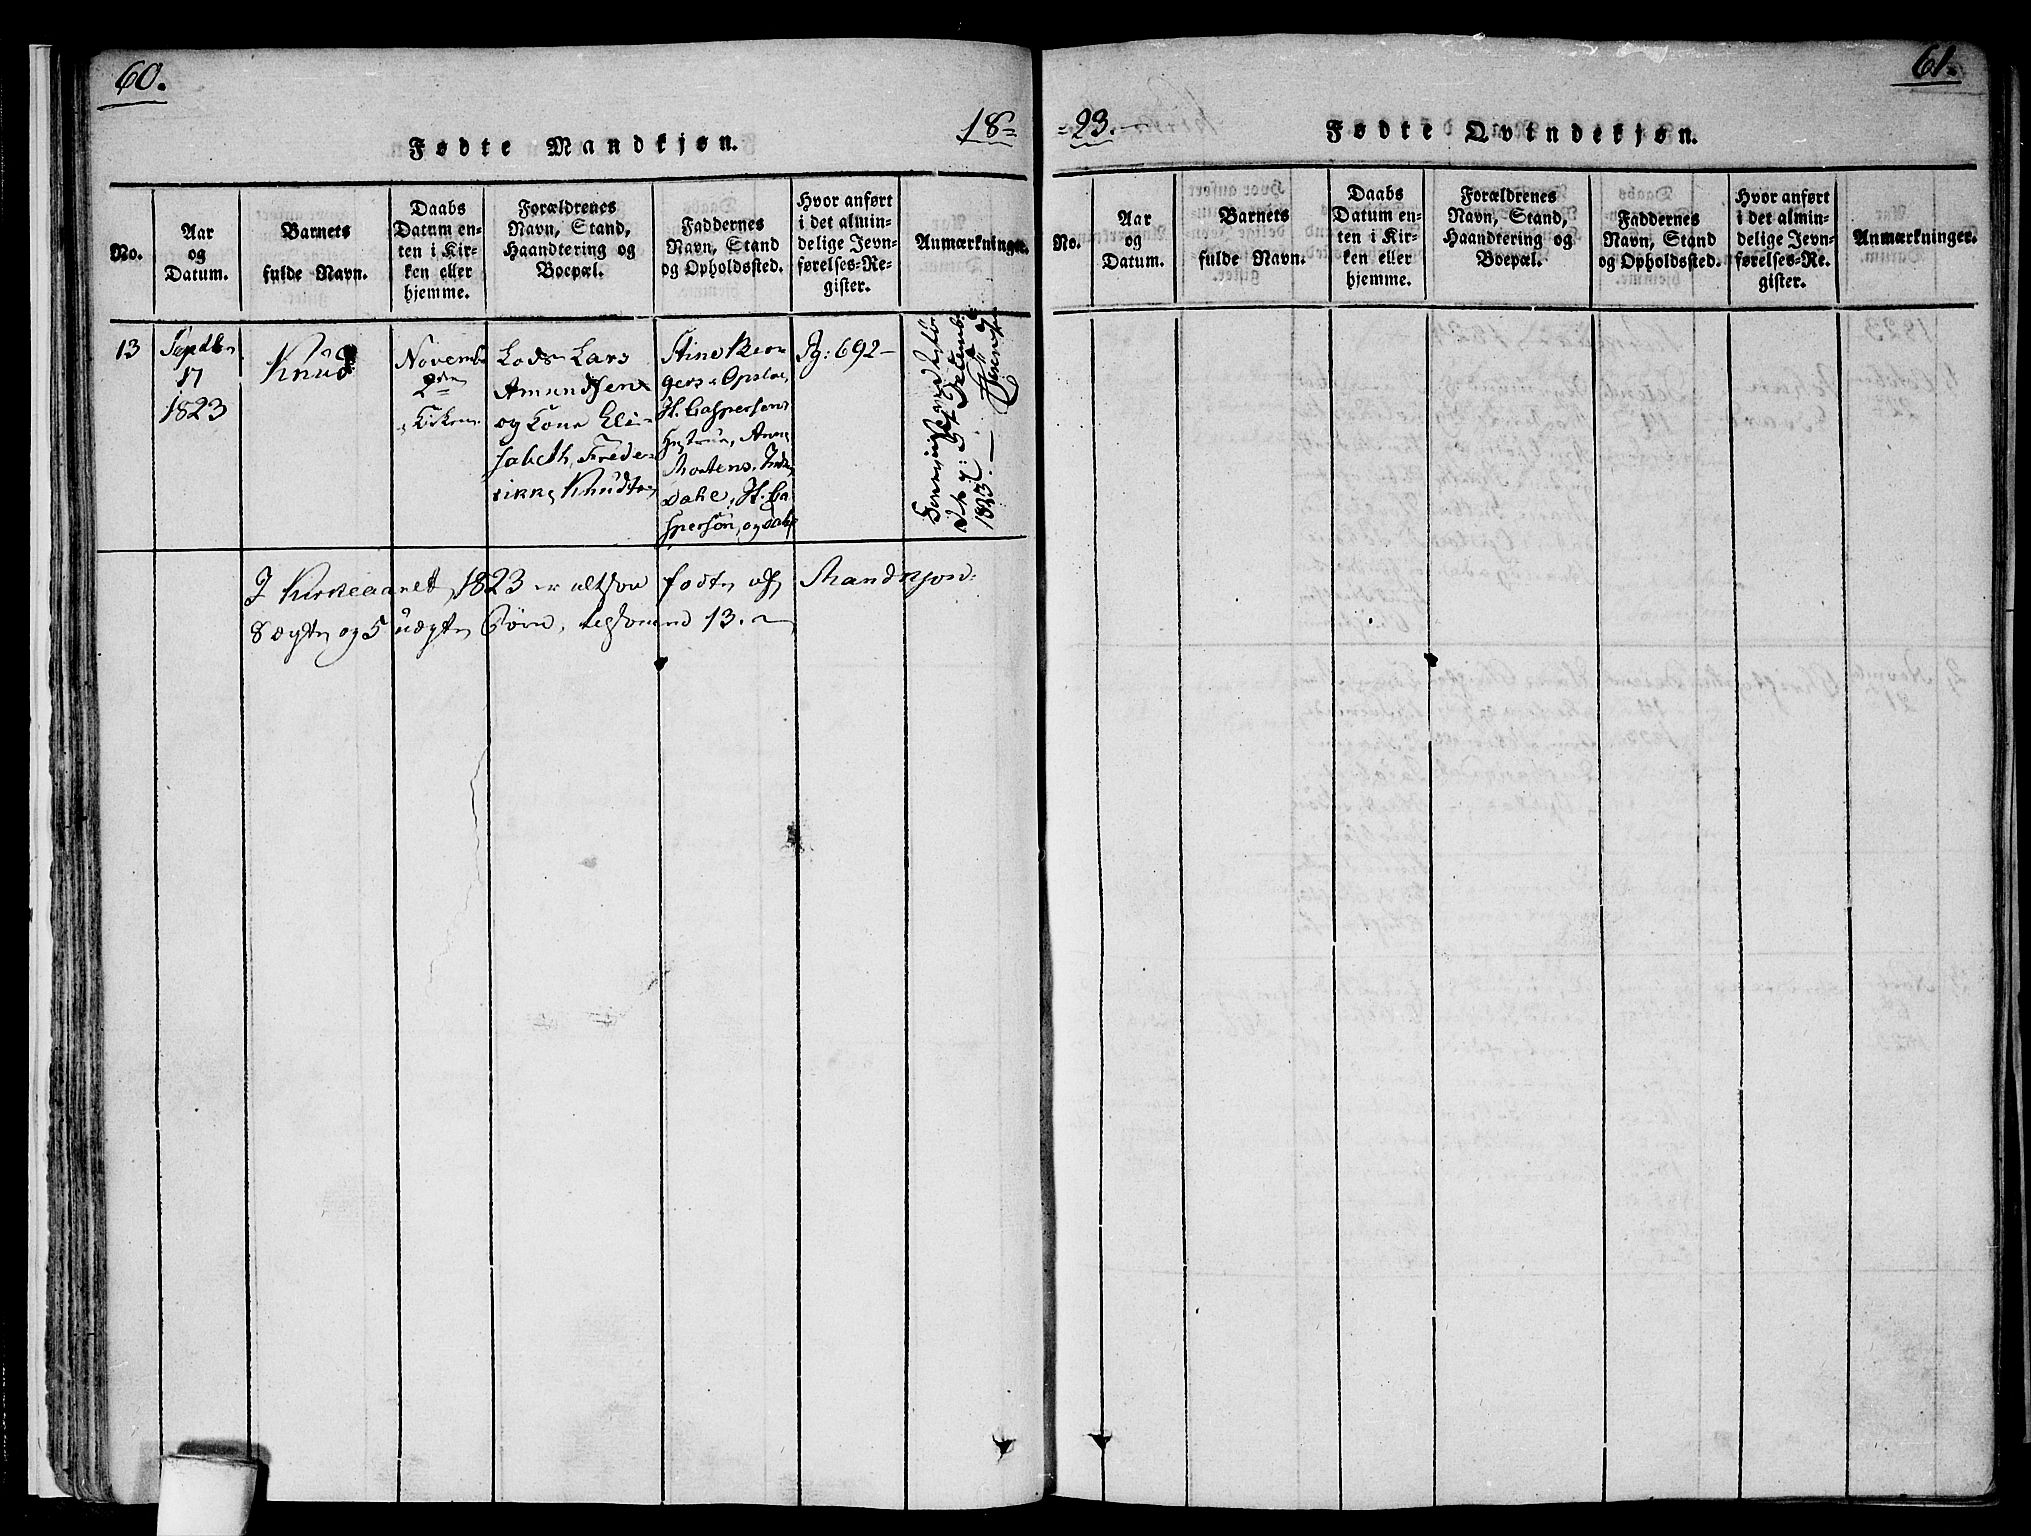 60.
18=
Fødte Mandkjøn.
No.
Aar
og
Datum.
Barnets
fulde Navn.
Daabs
Datum en-
ten i Kir-
ken eller
hjemme.
Forældrenes
Navn, Stand,
Haandtering og
Boepæl.
Faddernes
Navn, Stand
og Opholdssted.
Hvor anført
i det almin-
delige Jevn-
førelses-Re-
gister.
Anmærkninger.
13
Septbr
17
1823
Knud
Novemb
2den
i Kirken
Lods Lars
Amundsen
og Kone Eli-
sabeth Frede-
rikke Knudts
Stine Ber-
gers Opsloe,
H. Caspersens
Hustrue, Anne
Mortens
Dahl, H. Ca-
spersen, og
Pg: 692-
1823.
I Kirkeaaret 1823 er altsaa fødte af Mandkjøn:
8 ægte og 5 uægte Børn, tilsammen 13.
61.
=23.
Fødte Qvindekjøn.
No.
Aar
og
Datum.
Barnets
fulde Navn.
Daabs
Datum en-
ten i Kir-
ken eller
hjemme.
Forældrenes
Navn, Stand,
Haandtering og
Boepæl.
Faddernes
Navn, Stand
og Opholdssted.
Hvor anført
i det almin-
delige Jevn-
førelses-Re-
gister.
Anmærkninger.